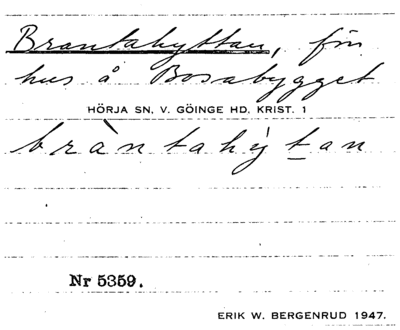 Brantahyttan, fin
hus å Bosabygget
HÖRJA SN. V. GÖINGE HD. KRIST. 1
bràntahỳtan
Nr 5359.
ERIK W. BERGENRUD 1947.